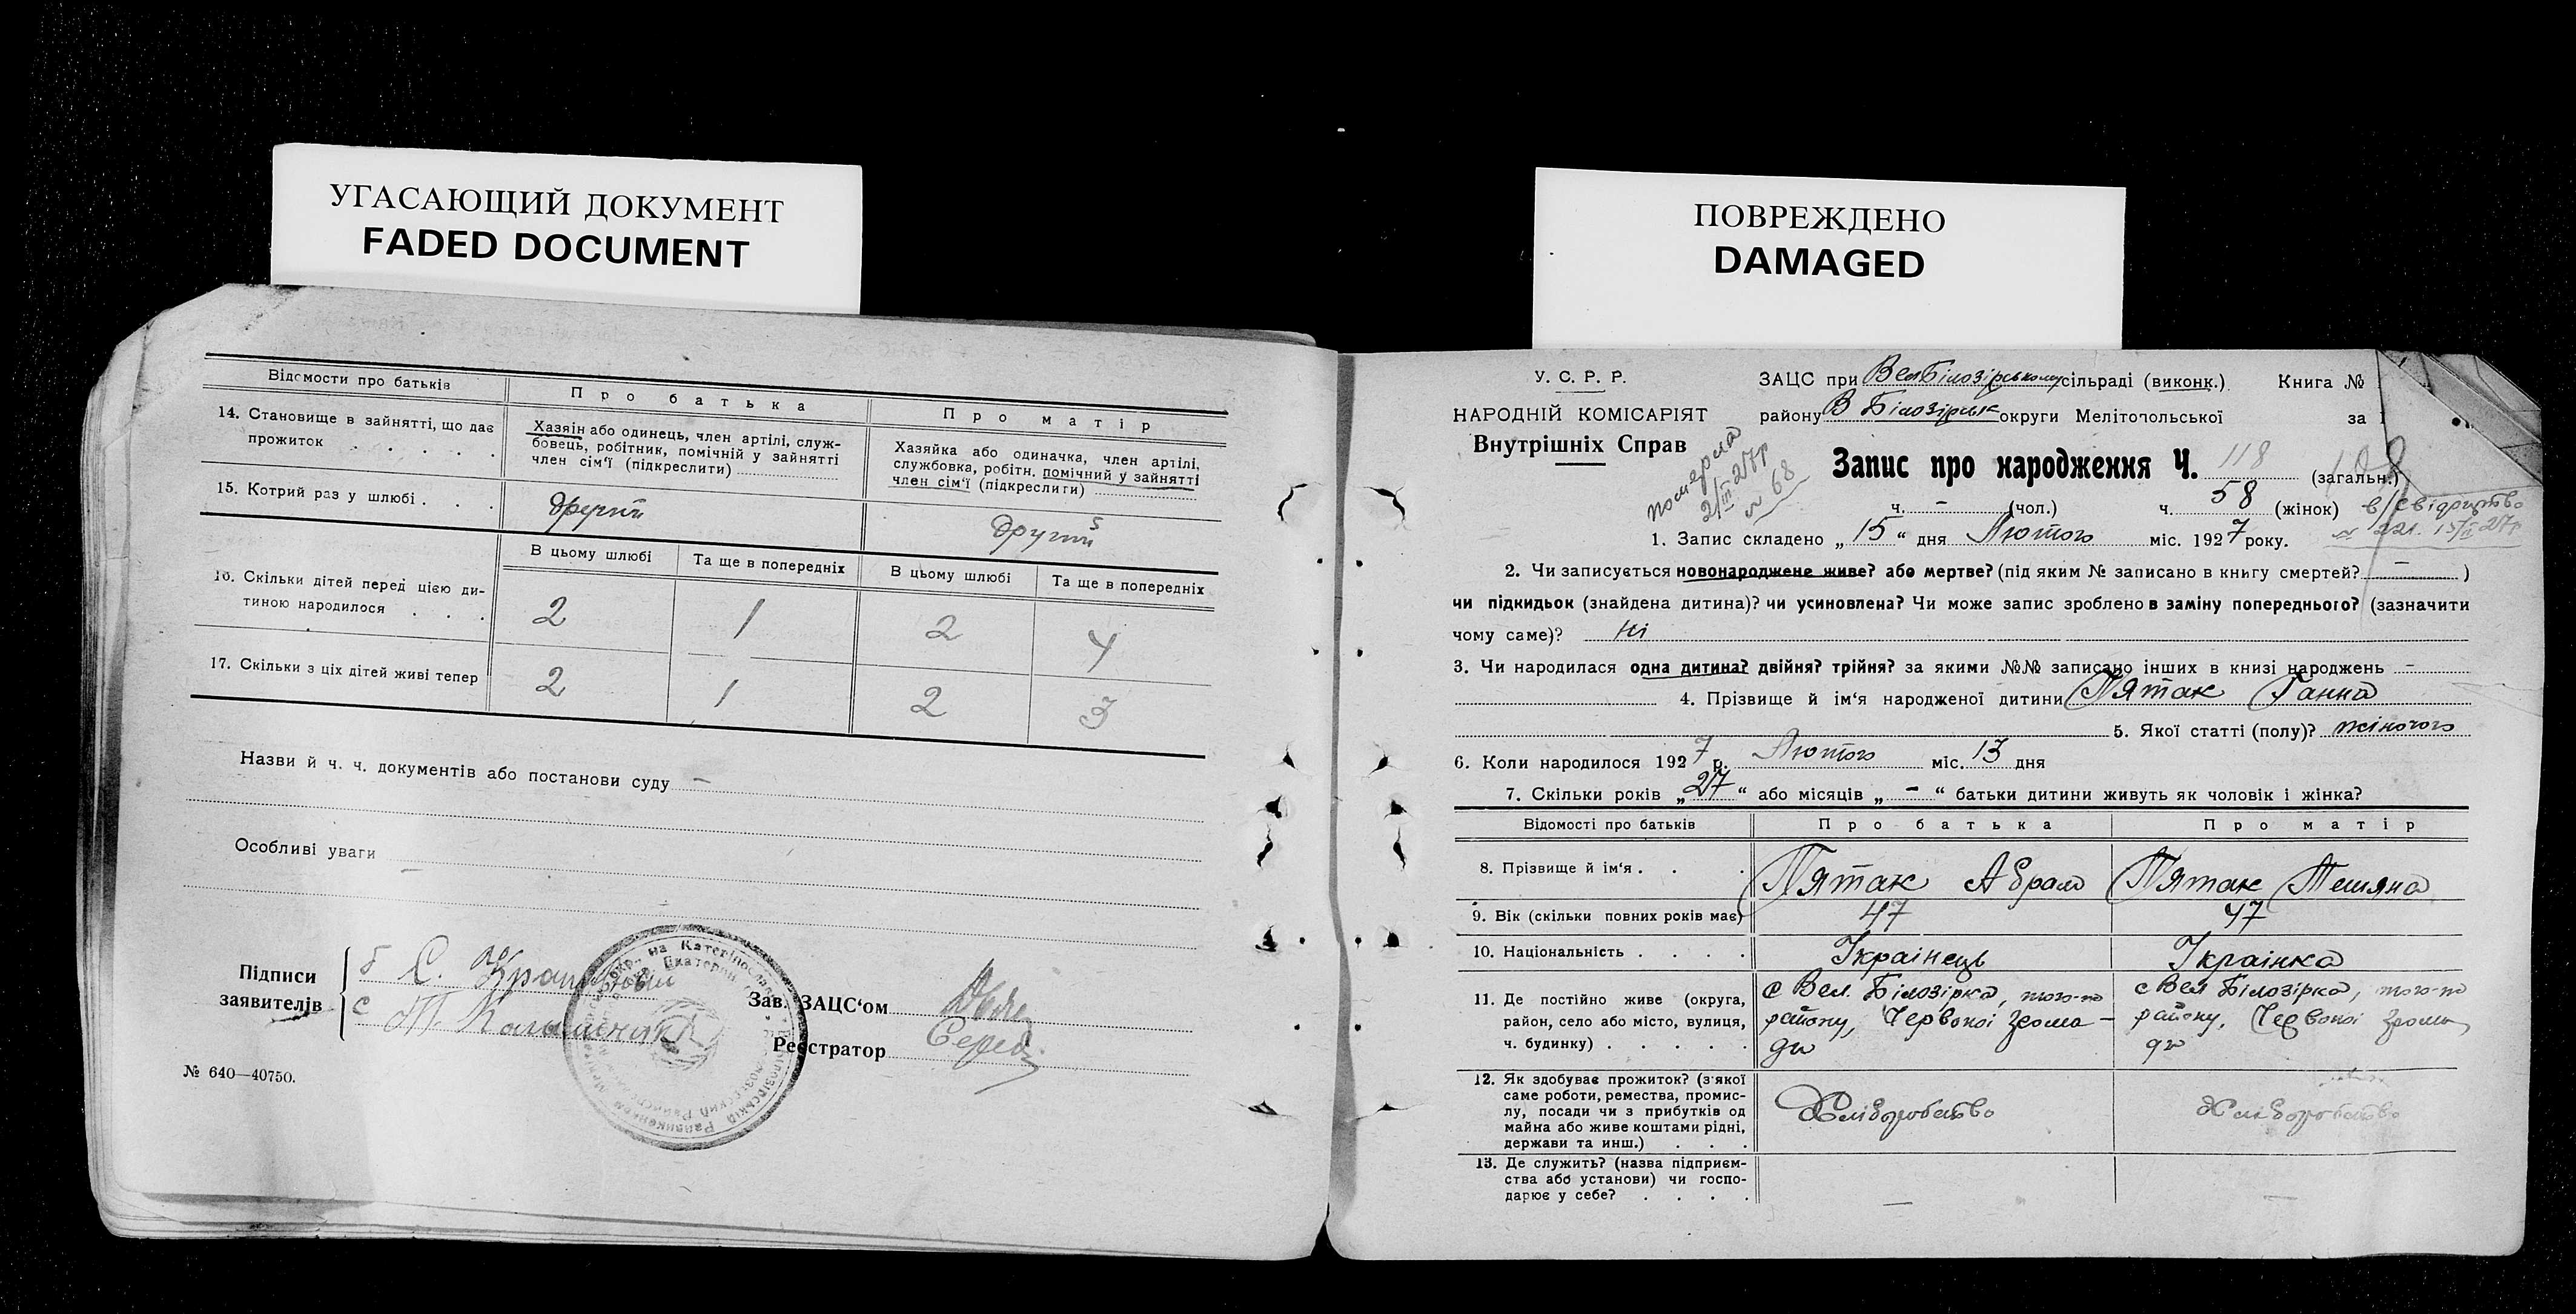 УГАСАЮЩИЙ ДОКУМЕНТ
FADED DOCUMENT
Відомости про батьків
Про батька
Про матір
14. Становище в зайнятті, що дає
прожиток . . . . .
Хазяін або одинець, член артілі, служ-
бовець, робітник, помічній у зайнятті
член сім‘ї (підкреслити)
Хазяйка або одиначка, член артілі,
службовка, робітн. помічний у зайнятті
член сім‘ї (підкреслити)
15. Котрий раз у шлюбі . . .
другий
другий
В цьому шлюбі
Та ще в попередніх
В цьому шлюбі
Та ще в попередніх
16. Скільки дітей перед цією ди-
тиною народилося . . .
2
1
2
4
17. Скільки з ціх дітей живі тепер
2
1
2
3
Назви й ч. ч. документів або постанови суду —
Особливі уваги —
Підписи
заявителів
Зав. ЗАЦС‘ом
Реєстратор
№ 640—40750.
ПОВРЕЖДЕНО
DAMAGED
У. С. Р. Р.
НАРОДНІЙ КОМІСАРІЯТ
Внутрішніх Справ
ЗАЦС при Вел Білозірському сільраді (виконк.)
Книга №
району В Білозірськ округи Мелітопольської
за 1
померла
2/III 27р
№ 68
Запис про народження Ч. 118 (загальн.)
ч. – (чол.) ч. 58 (жінок)
в/свідоцтво
№ 221. 15/II 27р
1. Запис складено „ 15 “ дня Лютого міс. 1927 року.
2. Чи записується новонароджене живе? або мертве? (під яким № записано в книгу смертей? — )
чи підкидьок (знайдена дитина)? чи усиновлена? Чи може запис зроблено в заміну попереднього? (зазначити
чому саме)? ні
3. Чи народилася одна дитина? двійня? трійня? за якими №№ записано інших в книзі народжень –
4. Прізвище й ім‘я народженої дитини Пятак Ганна
5. Якої статті (полу)? жіночого
6. Коли народилося 1927 р. Лютого міс. 13 дня
7. Скільки років „ “ або місяців „ – “ батьки дитини живуть як чоловік і жінка?
Відомості про батьків
Про батька
Про матір
8. Прізвище й ім‘я . . .
Пятак Абрам
Пятак Тетяна
9. Вік (скільки повних років має)
47
47
10. Національність . . . .
Українець
Українка
11. Де постійно живе (округа,
район, село або місто, вулиця,
ч. будинку) . . . . .
с Вел. Білозірка, того-ж
району, Червоної грома-
ди
с Вел Білозірка, того-ж
району, Червоної грома
ди
12. Як здобуває прожиток? (з якої
саме роботи, ремества, промис-
лу, посади чи з прибутків од
майна або живе коштами рідні,
держави та инш.) . . .
Хліборобство
Хліборобство
13. Де служить? (назва підприєм-
ства або установи) чи госпо-
дарює у себе? . . . .
—
—